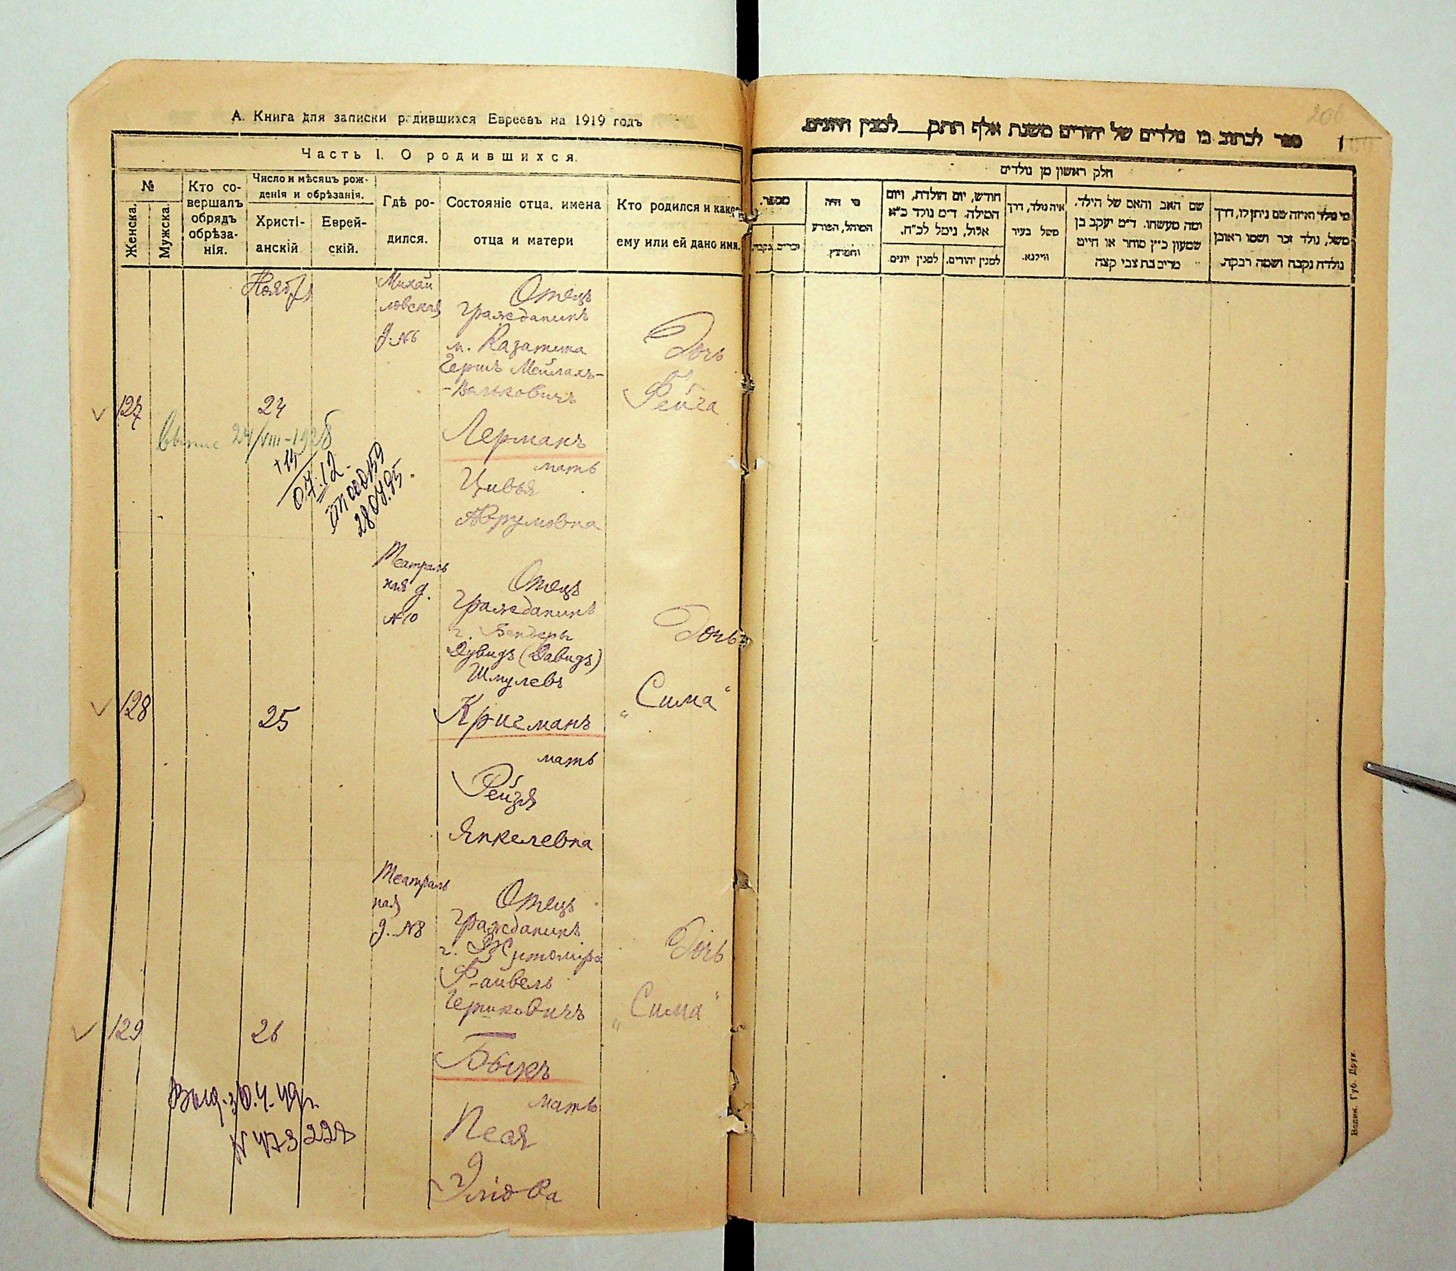 А. Книга для записки родившихся Евреевъ на 1919 годъ
Часть I. О родившихся.
№
Женска.
Мужска.
Кто со-
вершалъ
обрядъ
обрѣза-
нія.
Число и мѣсяцъ рож-
денія и обрѣзанія.
Христі-
анскій
Еврей-
скій.
Гдѣ ро-
дился.
Состояніе отца, имена
отца и матери
Кто родился и какое
ему или ей дано имя.
127
Ноября
24
Михай
ловская
д. №6
Отецъ
гражданинъ
м. Казатина
Гершъ Мейлахъ-
-Вольковичъ
Лерманъ
мать
Цивья
Аврумовна
Дочь
Фейга
24/VIII-1928
28 04 95
128
25
Театраль
ная д.
№10
Отецъ
гражданинъ
г. Бендеры
Дувидъ (Давидъ)
Шмулевъ
Кригманъ
мать
Рейзя
Янкелевна
Дочь
"Сима"
129
26
Театраль
ная
д. №8
Отецъ
гражданинъ
г. Житоміра
Файвель
Гершковичъ
Быкъ
мать
Песя
Эліова
Дочь
"Сима"
206
ספר לכתוב בו נולדים של יהודים משנת אלף התתק___למנין היונים.
חלק ראשון מן נולדים
מספר.
זכרים.
נקבה.
מי היה
המוהל, הפורע
והמוצץ.
חודש, יום הולדת, ויום
המילה. ד״מ נולד כ״א
אלול, נימל לכ״ח.
למנין יונים.
למנין יהודים.
איה נולד, דרך
משל בעיר
ווילנא.
שם האב והאם של הילד.
ומה מעשהו. ד״מ יעקב בן
שמעון כ״ץ סוחר או חייט
מרים בת צבי קצה
מי נולד ואיזה שם ניתן לו, דרך
משל, נולד זכר ושמו ראובן
נולדה נקבה ושמה רבקה.